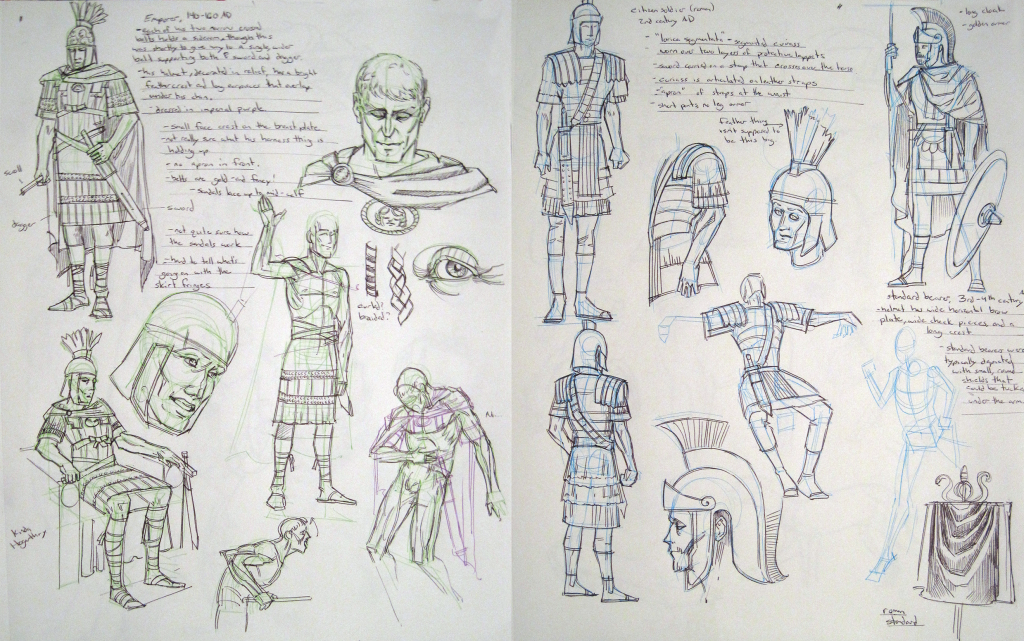 Emperor, 140-160 AD
belt supporting both sword and dagger.
- this helmet, decorated in relief, has a bright
feather crest and long earpieces that overlap
under his chin.
- dressed in imperial purple
- small face crest on the breast plate
- not really sure what the harness thing is
holding up
- no apron in front.
- belts are gold and fancy!
- sandals lace up to mid-calf
scroll
dagger
sword
- not quite sure how
the sandals work
- hard to tell what's
going on with the
skirt fringes
braided?
Kinda
citizen soldier (roman)
2nd century AD
- "lorica segmentata" - segmented cuirass
worn over two layers of protective
- sword carried on a strap that crosses over the torso
- cuirass is articulated on leather strips
- "apron" of straps at the waist
- short pants no leg armor
feather thing
isn't supposed to
be this big.
- long cloak
- golden armor
standard bearer, 3rd-4th century
- helmet has wide horizontal brow
plate, wide cheek pieces and a
long crest
- standard bearers were
typically depicted
with small, round
shields that
could be tucked
under the arm.
roman
standard